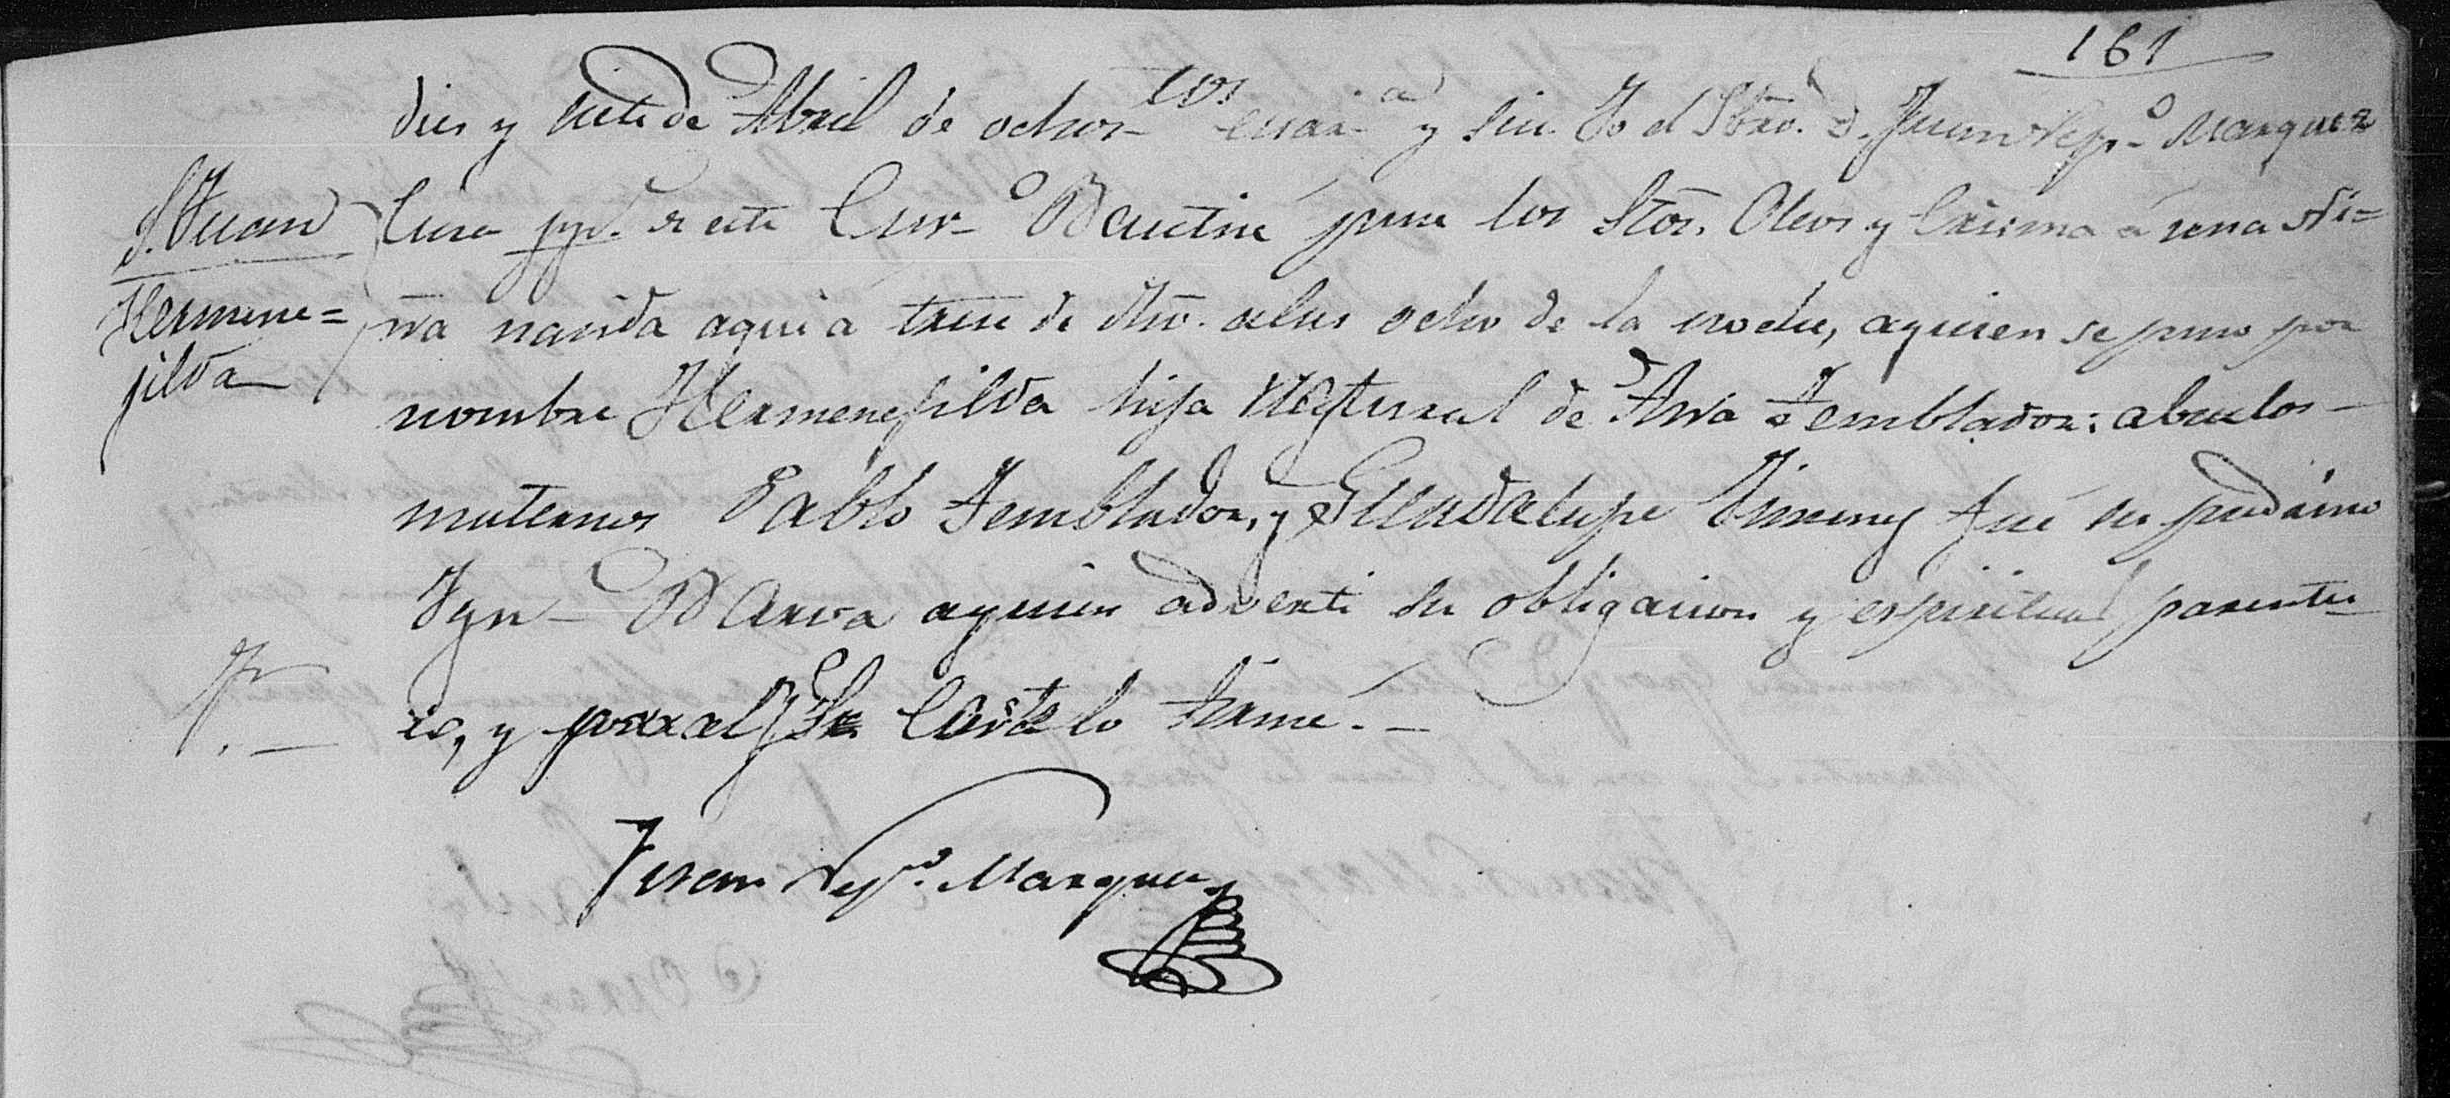 161
dies y siete de Abril de ochos.tos cuar.a y seis. Yo el Pbro. D. Juan Nep.o Marquez
S. Juan
Cura pp.o de este Cur.o Bautisé puse los Stos. Oleos y Crisma á una Ni=
Hermene=
jilda
ña nacida aqui a trese de dho. alas ocho de la noche, aquien se puso por
nombre Hermenejilda hija Natural de Ana Temblador: abuelos
maternos Pablo Temblador, y Guadalupe Ximenez fué su padrino
Ygn.o Barva aquien adverti su obligacion y espiritual parentes
co, y para q.e conste lo firmé.
Juan Nep.o Marquez